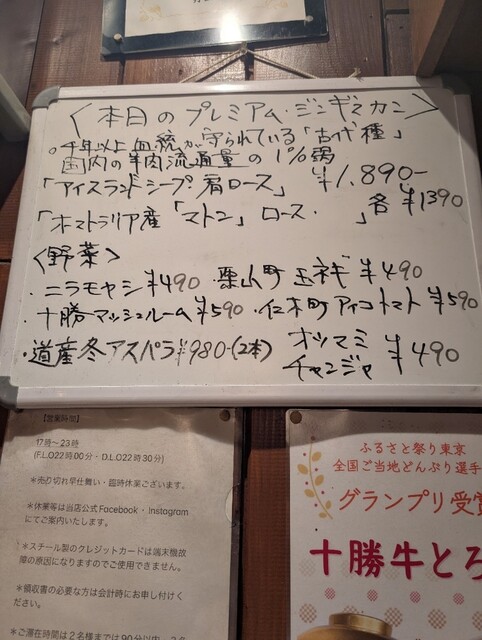 〈本日のプレミアム・ジンギスカン〉
○千年以上血統が守られている「古代種」
国内の羊肉流通量の1%弱
「アイスランドシープ・肩ロース」 ¥1,890-
「オーストラリア産「マトン」ロース・ 」各¥1390
〈野菜〉
・ニラモヤシ¥490 ・栗山町 玉ネギ ¥490
・十勝マッシュルーム¥590 ・仁木町アイコトマト¥590
・道産冬アスパラ¥980-(2本) オツマミ
チャンジャ ¥490
【営業時間】
17時〜23時
(F.L.O22時00分・D.L.O22時30分)
*売り切れ早仕舞い・臨時休業ございます。
*休業等は当店公式Facebook・Instagram
にてご案内いたします。
*スチール製のクレジットカードは端末機故
障の原因になりますのでご使用できません。
*領収書の必要な方は会計時にお申し付けく
ださい。
*ご滞在時間は2名様までは90分以内
ふるさと祭り東京
全国ご当地どんぶり選手
グランプリ受賞
十勝牛とろ